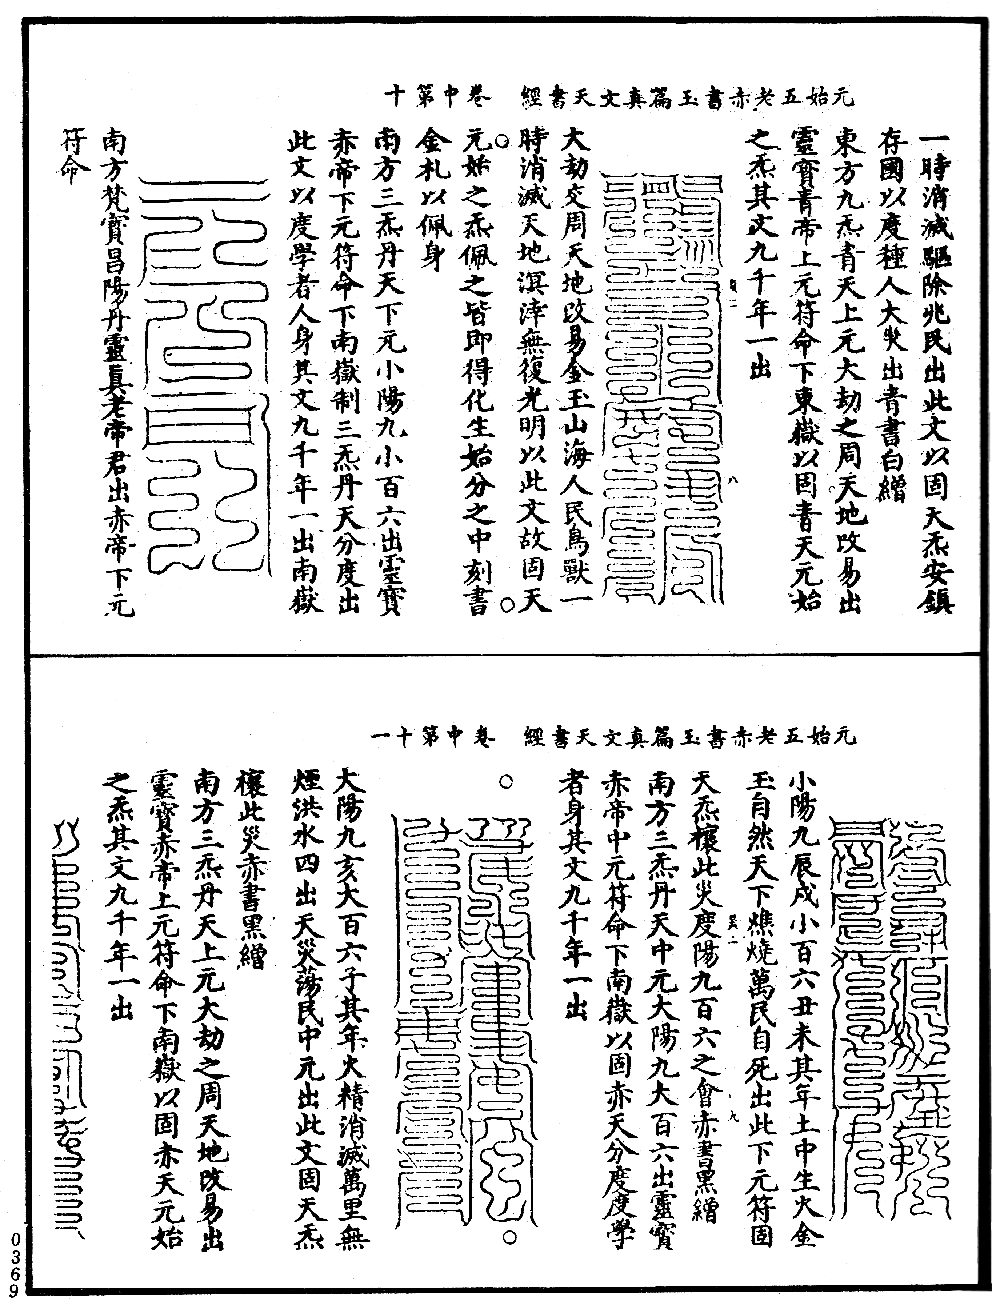 元始五老赤書玉篇真文天書經　卷中第十
一時消滅驅除兆民出此文以固天炁安鎮
存國以度種人大災出青書白繒
東方九炁青天上元大劫之周天地改易出
靈寶青帝上元符命下東嶽以固青天元始
之炁其文九千年一出
大劫交周天地改易金玉山海人民鳥獸一
時消滅天地溟涬無復光明以此文故固天
元始之炁佩之皆即得化生始分之中刻書
金札以佩身
南方三炁丹天下元小陽九小百六出靈寶
赤帝下元符命下南嶽制三炁丹天分度出
此文以度學者人身其文九千年一出南嶽
南方梵寶昌陽丹靈真老帝君出赤帝下元
符命
元始五老赤書玉篇真文天書經　卷中第十一
小陽九辰戌小百六丑未其年土中生火金
玉自然天下燋燒萬民自死出此下元符固
天炁禳此災度陽九百六之會赤書黑繒
南方三炁丹天中元大陽九大百六出靈寶
赤帝中元符命下南嶽以固赤天分度度學
者身其文九千年一出
大陽九亥大百六子其年火精消滅萬里無
煙洪水四出天災蕩民中元出此文固天炁
禳此災赤書黑繒
南方三炁丹天上元大劫之周天地改易出
靈寶赤帝上元符命下南嶽以固赤天元始
之炁其文九千年一出
0369